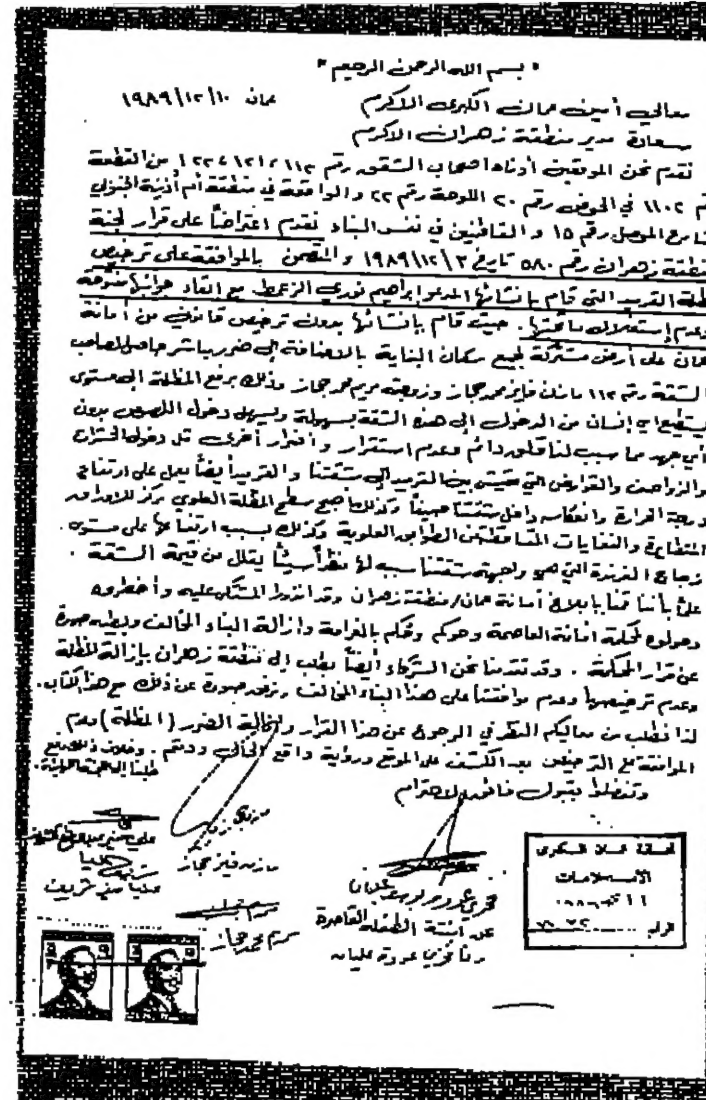 " بسم الله الرحمن الرحيم "
معالي أمين عمان الكبرى الاكرم عمان ١٩٨٩/١٢/١٠
سعادة مدير منطقة زهران الاكرم
نقدم نحن الموقعين أدناه اصحاب الشقق رقم ١١٢ من القطعة
رقم ١١٠٢ في الحوض رقم ٢٠ اللوحة رقم ٢٢ والواقعة في منطقة أم أذينة الجنوبي
شارع الموصل رقم ١٥ و القاطنين في نفس البناء نقدم اعتراضاً على قرار لجنة
منطقة زهران رقم ٥٨٠ تاريخ ١٩٨٩/١٢/٣ والمتضمن بالموافقة على ترخيص
مظلة القرميد التي قام بانشائها المدعو ابراهيم نوري الزعمط مع ابقاء جوانبها مفتوحة
وعدم إستغلال ما تحتها. حيث قام بانشائها بدون ترخيص قانوني من أمانة
عمان على أرض مشتركة لجميع سكان البناية بالاضافة إلى ضرر مباشر حاصل لصاحب
الشقة رقم ١١٢ مازن فايز محمد حجاز وزوجته مريم محمد حجاز وذلك برفع المظلة الى مستوى
يستطيع اي إنسان من الدخول إلى هذه الشقة بسهولة ويسهل دخول اللصوص بدون
أي جهد مما سبب لنا قلق دائم وعدم استقرار و أضرار أخرى مثل دخول الحشرات
والزواحف والقوارض التي تعيش بين القرميد إلى شقتنا و القرميد أيضاً يعمل على ارتفاع
درجة الحرارة وانعكاسه داخل شقتنا صيفاً وكذلك اصبح سطح المظلة العلوي مركز للاوراق
المتطايرة والنفايات المتساقطة من الطوابق العلوية وكذلك بسبب ارتفاعها على مستوى
زجاج الفرندة التي هي واجهة شقتنا سبب لها منظراً سيئاً يقلل من قيمة الشقة .
علماً بأننا قمنا بابلاغ أمانة عمان/منطقة زهران وقد انذروا المشتكى عليه وأخطروه
وحولوه لمحكمة امانة العاصمة وحوكم وحكم بالغرامة وازالة البناء المخالف وبطيه صورة
عن قرار المحكمة . وقد تقدمنا نحن الشركاء أيضاً بطلب إلى منطقة زهران بإزالة المظلة
وعدم ترخيصها وعدم موافقتنا على هذا البناء المخالف ونرفق صورة عن ذلك مع هذا الكتاب.
لذا نطلب من معاليكم النظر في الرجوع عن هذا القرار وازالة الضرر (المظلة) وعدم
الموافقة على الترخيص بعد الكشف على الموقع ورؤية واقع الحال ودمتم .
وتفضلوا بقبول فائق الاحترام
مازن فايز حجاز
مريم محمد حجاز
عن ابنته الطفلة القاصرة
امانة عمان الكبرى